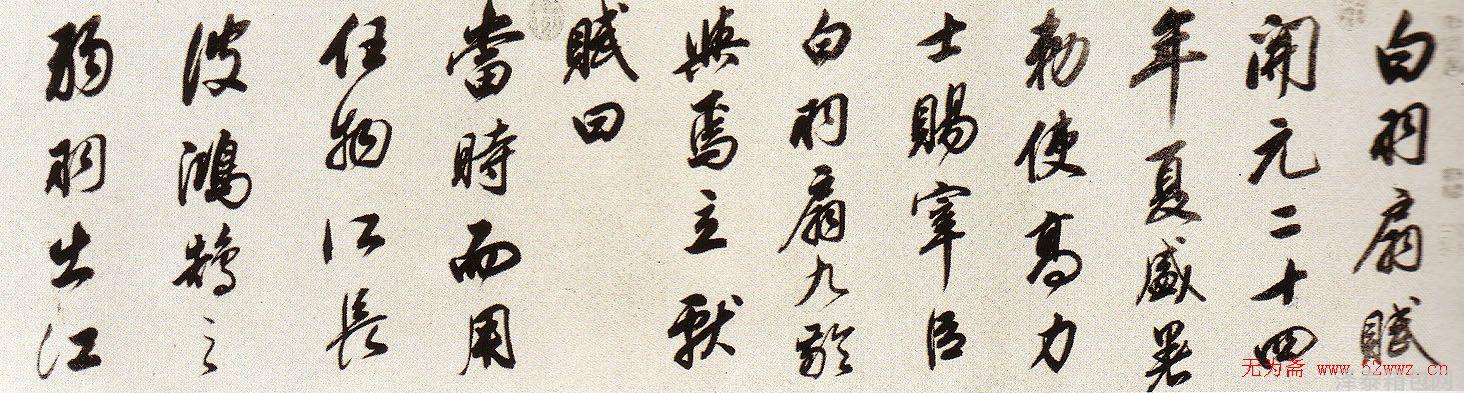 白羽扇賦
開元二十四
年夏盛暑
勅使高力
士賜宰臣
白羽扇九齡
與焉立獻
賦曰
當時而用
任物所長
彼鴻鵠之
弱羽出江
无为斋 www.52wwz.cn